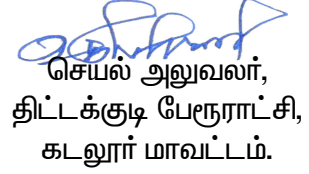 செயல் அலுவலர்,
திட்டக்குடி பேரூராட்சி,
கடலூர் மாவட்டம்.